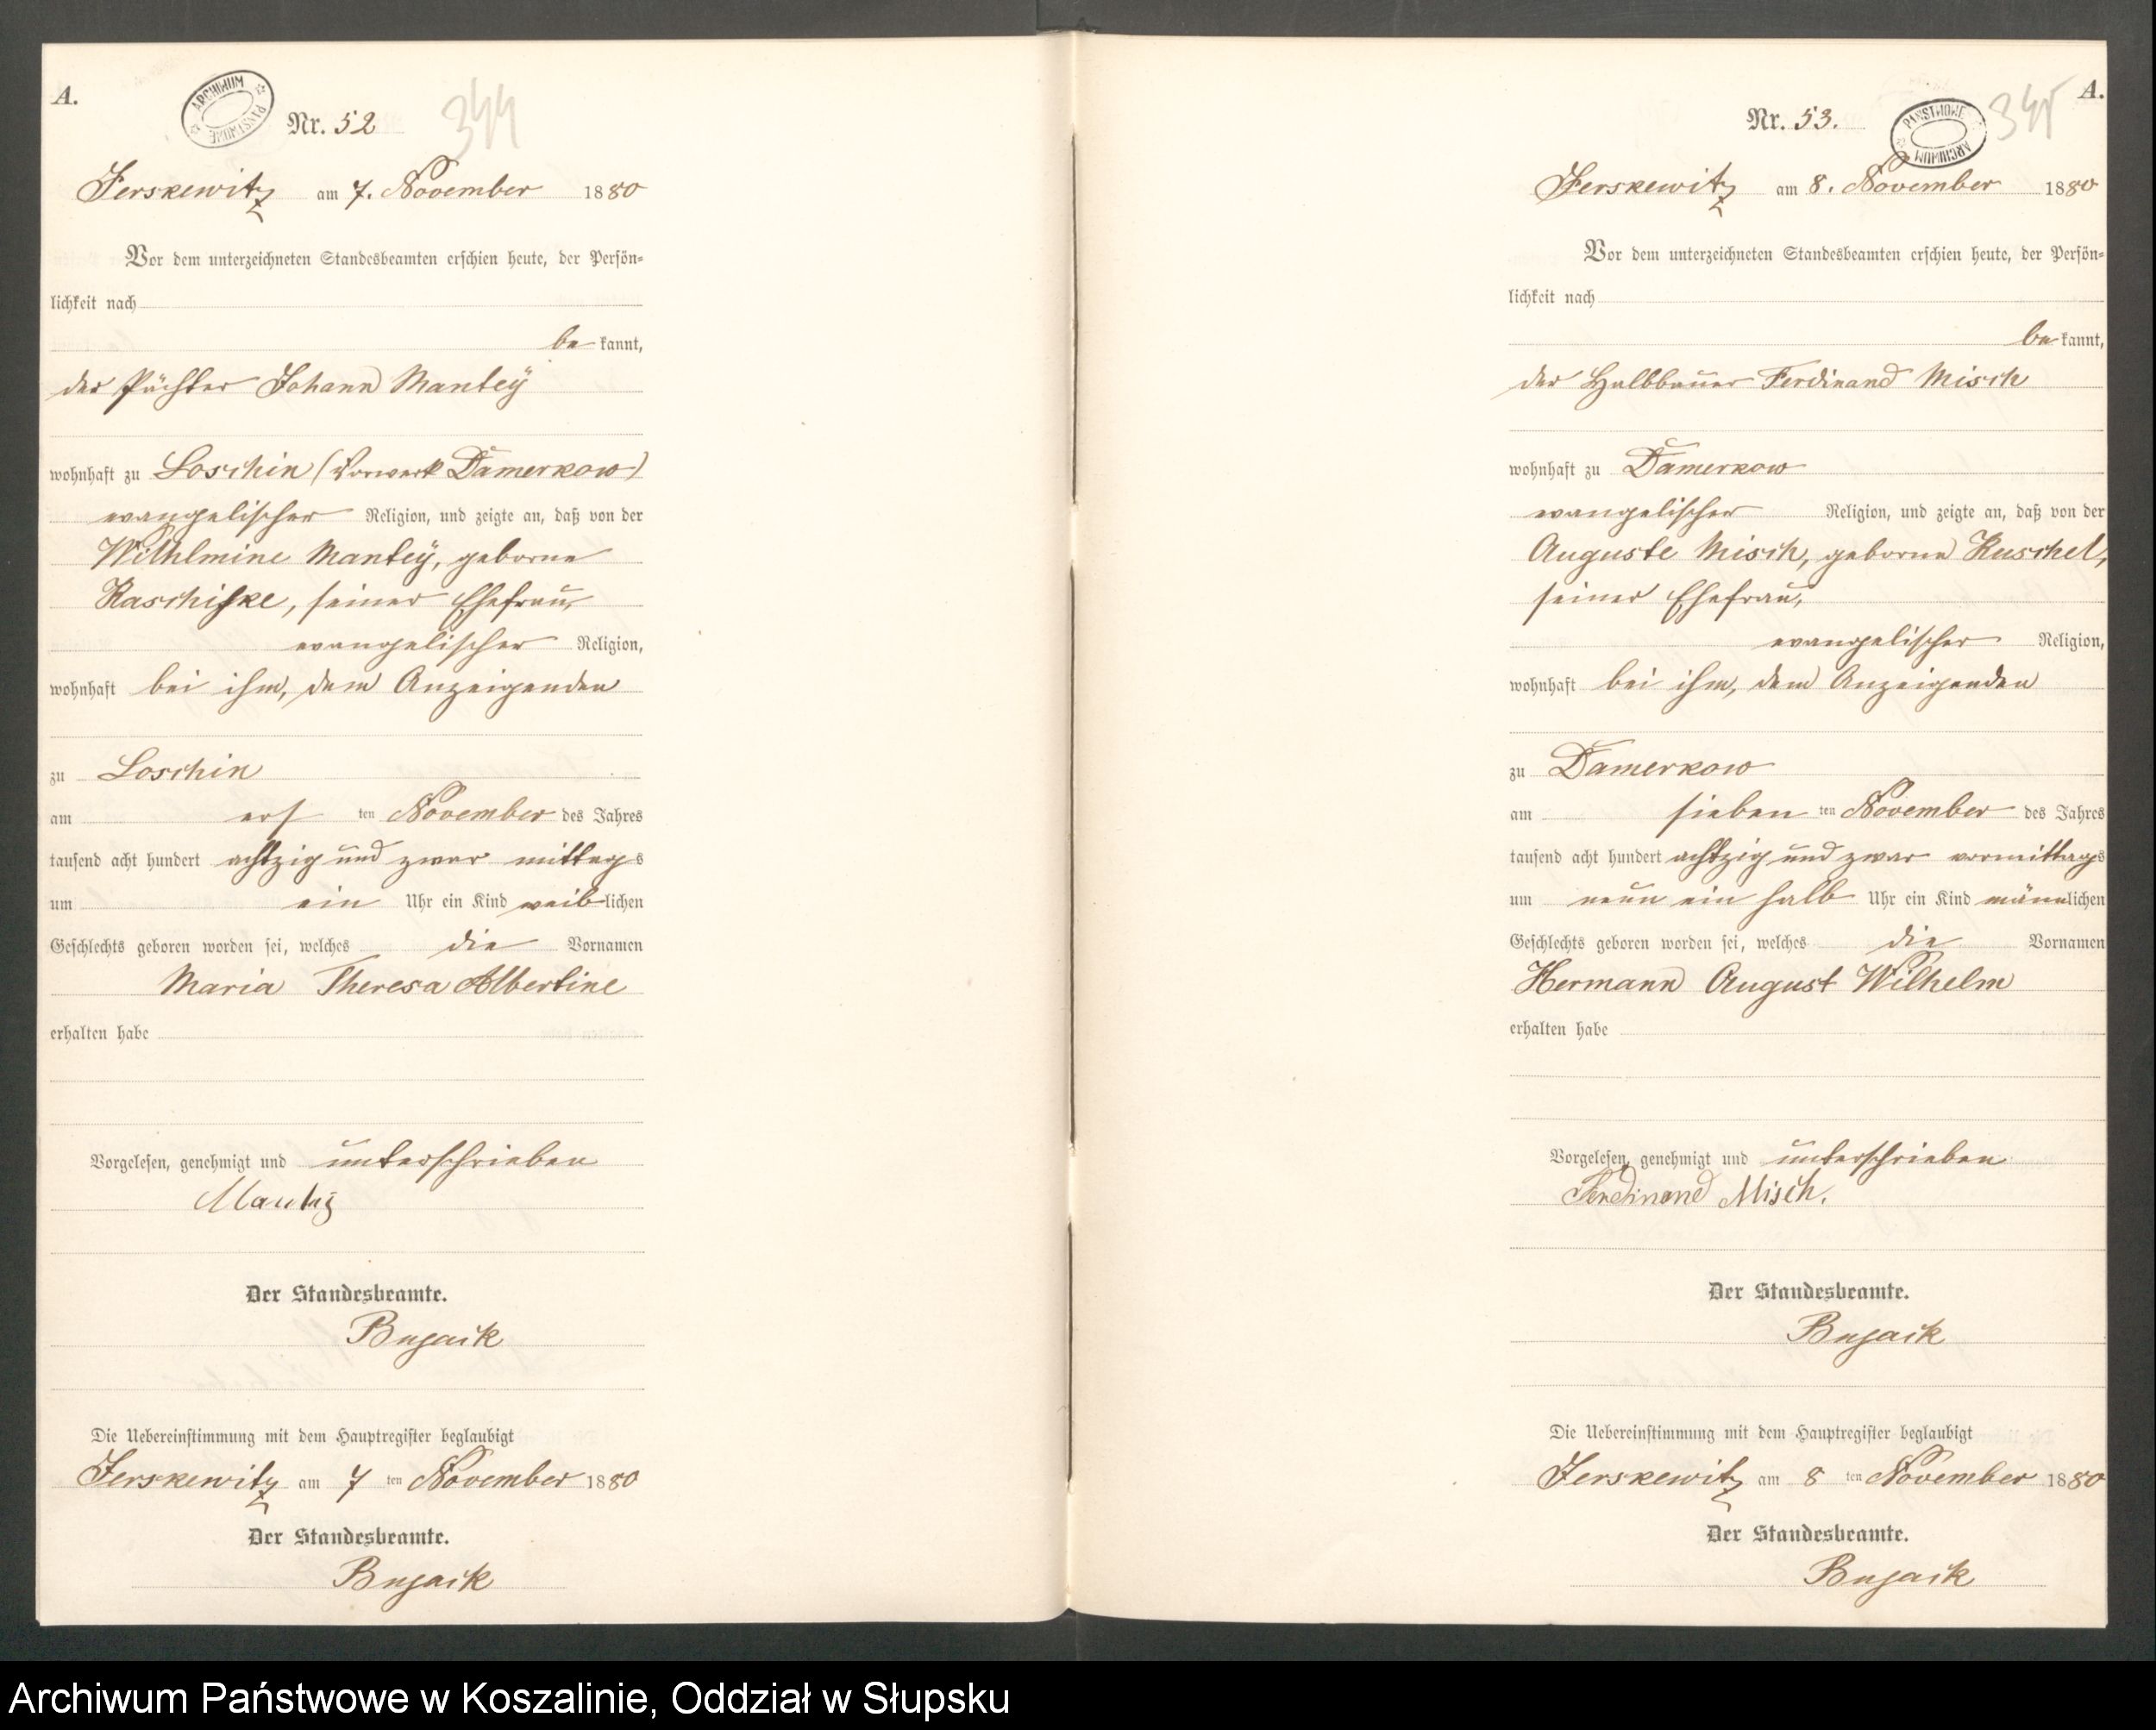 A.
ARCHIWUM PAŃSTWOWE
Nr. 52
344
Jerskewitz am 7. November 1880
Vor dem unterzeichneten Standesbeamten erschien heute, der Persön-
lichkeit nach
be kannt,
der Pächter Johann Manteÿ
wohnhaft zu Loschin (Vorwerk Damerkow)
evangelischer Religion, und zeigte an, daß von der
Wilhlmine Manteÿ, geborne
Raschiske, seiner Ehefrau,
evangelischer Religion,
wohnhaft bei ihm, dem Anzeigenden
zu Loschin
am ers ten November des Jahres
tausend acht hundert achtzig und zwar mittags
um ein Uhr ein Kind weiblichen
Geschlechts geboren worden sei, welches die Vornamen
Maria Theresa Albertine
erhalten habe
Vorgelesen, genehmigt und unterschrieben
Mantey
Der Standesbeamte.
Bujack
Die Uebereinstimmung mit dem Hauptregister beglaubigt
Jerskewitz am 7 ten November 1880
Der Standesbeamte.
Bujack
A.
Nr. 53.
PAŃSTWOWE ARCHIWUM
345
Jerskewitz am 8. November 1880
Vor dem unterzeichneten Standesbeamten erschien heute, der Persön-
lichkeit nach
be kannt,
der Halbbauer Ferdinand Misch
wohnhaft zu Damerkow
evangelischer Religion, und zeigte an, daß von der
Auguste Misch, geborne Kuschel,
seiner Ehefrau,
evangelischer Religion,
wohnhaft bei ihm, dem Anzeigenden
zu Damerkow
am sieben ten November des Jahres
tausend acht hundert achtzig und zwar vormittags
um neun ein halb Uhr ein Kind männlichen
Geschlechts geboren worden sei, welches die Vornamen
Hermann August Wilhelm
erhalten habe
Vorgelesen, genehmigt und unterschrieben
Ferdinand Misch.
Der Standesbeamte.
Bujack
Die Uebereinstimmung mit dem Hauptregister beglaubigt
Jerskewitz am 8 ten November 1880
Der Standesbeamte.
Bujack
Archiwum Państwowe w Koszalinie, Oddział w Słupsku